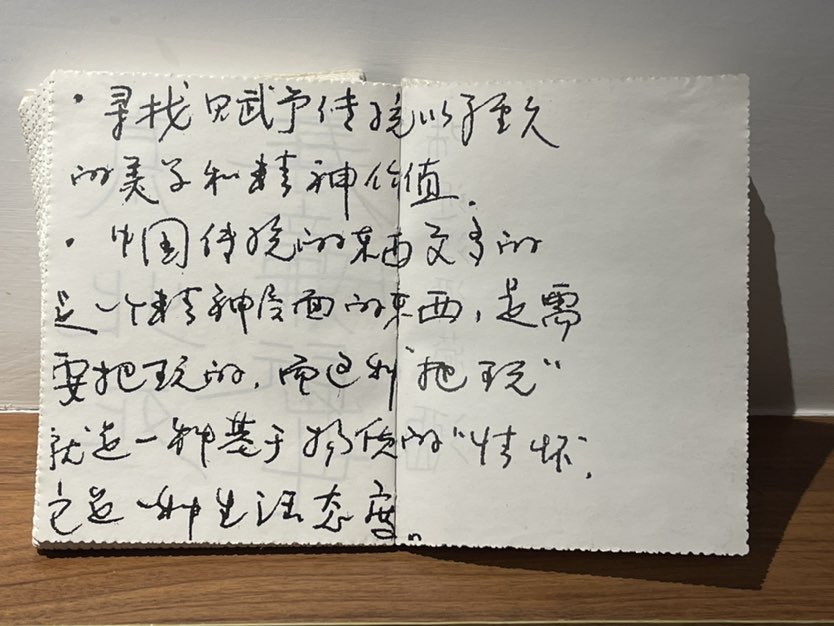 · 寻找回赋予传统以降至久
的美学和精神价值.
· 中国传统的东西更多的
是一个精神层面的东西,是需
要把玩的,而这种"把玩"
就是一种基于 的"情怀,
它是一种生活态度。"